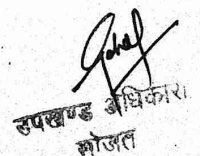 उपखण्ड अधिकारी
सोजत